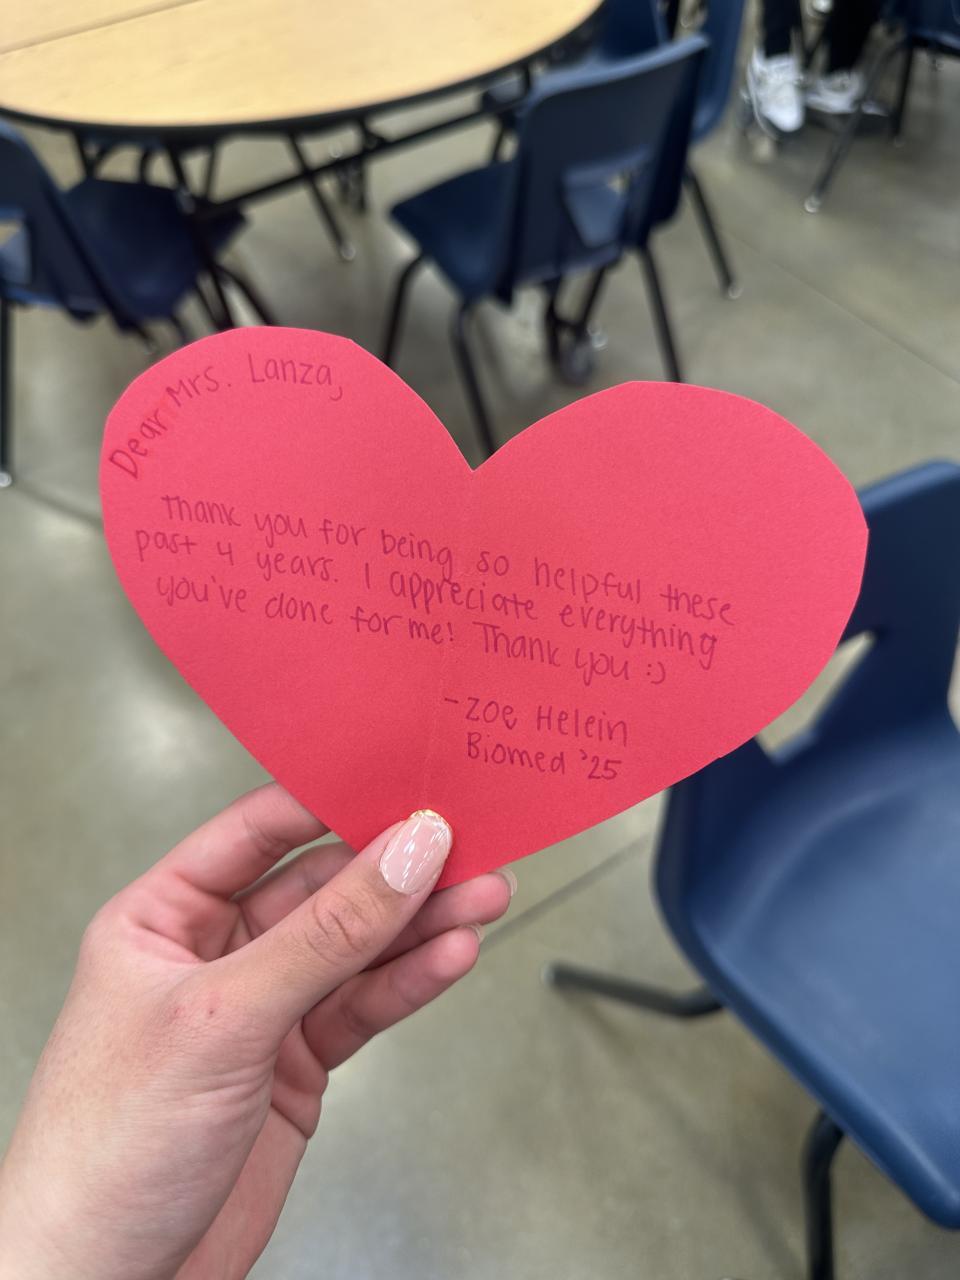 Dear Mrs. Lanza,
Thank you for being so helpful these
past 4 years. I appreciate everything
you've done for me! Thank you :)
-Zoe Helein
Biomed '25